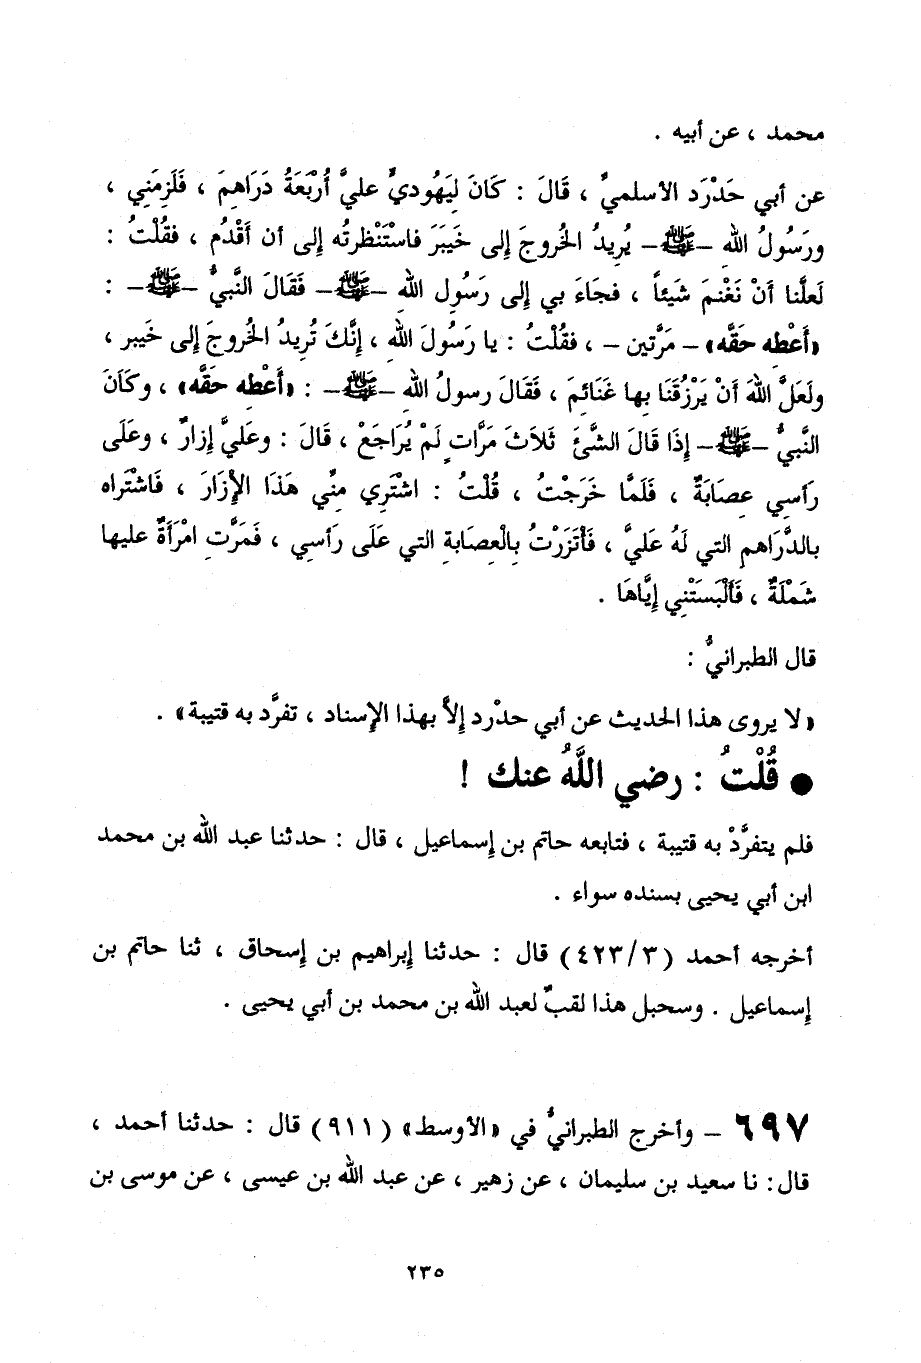 محمد ، عن أبيه .
عن أبي حَدْرَد الأسلميِّ ، قَالَ : كَانَ لِيَهُوديٍّ عليَّ أرْبَعَةُ دَرَاهِمَ ، فَلَزِمَنِي ،
ورَسُولُ الله –ﷺ– يُرِيدُ الخُروجَ إلى خَيبَرَ فاسْتَنْظرتُه إلى أن أقْدُم ، فقُلْتُ :
لَعلَّنا أنْ نَغْنمَ شَيئاً ، فجَاءَ بي إلى رَسُولِ الله –ﷺ– فَقَالَ النَّبيُّ –ﷺ– :
«أَعْطِه حَقَّه» – مَرَّتين – ، فقُلْتُ : يا رَسُولَ اللهِ ، إنَّكَ تُرِيدُ الخُروجَ إلى خَيبر ،
ولَعَلَّ اللهَ أنْ يَرْزُقَنَا بِها غَنَائِمَ ، فَقَالَ رسولُ الله –ﷺ– : «أَعْطِه حَقَّه» ، وكَانَ
النَّبيُّ –ﷺ– إذَا قَالَ الشَّئَ ثَلاَثَ مَرَّاتٍ لَمْ يُرَاجَعْ ، قَالَ : وعَليَّ إزارٌ ، وعَلَى
رَأسِي عِصَابَةٌ ، فَلَمَّا خَرَجْتُ ، قُلْتُ : اشْتَرِي مِنِّي هَذَا الإزَارَ ، فَاشْتَراه
بالدَّرَاهِمِ التي لَهُ عَليَّ ، فَأتَزَرْتُ بِالْعِصَابةِ التي عَلَى رَأسي ، فَمَرَّتِ امْرَأةٌ عليها
شَمْلَةٌ ، فَألْبَسَتْنِي إيَّاهَا .
قال الطبرانيُّ :
« لا يروى هذا الحديث عن أبي حدْرد إلاَّ بهذا الإسناد ، تفرَّد به قتيبة» .
● قُلْتُ : رضي اللَّهُ عنك !
فلم يتفرَّدْ به قتيبة ، فتابعه حاتم بن إسماعيل ، قال : حدثنا عبد الله بن محمد
ابن أبي يحيى بسنده سواء .
أخرجه أحمد (٤٢٣/٣) قال : حدثنا إبراهيم بن إسحاق ، ثنا حاتم بن
إسماعيل . وسحبل هذا لقبٌ لعبد الله بن محمد بن أبي يحيى .
٦٩٧ – وأخرج الطبرانيُّ في «الأوسط» (٩١١) قال : حدثنا أحمد ،
قال : نا سعيد بن سليمان ، عن زهير ، عن عبد الله بن عيسى ، عن موسى بن
٢٣٥